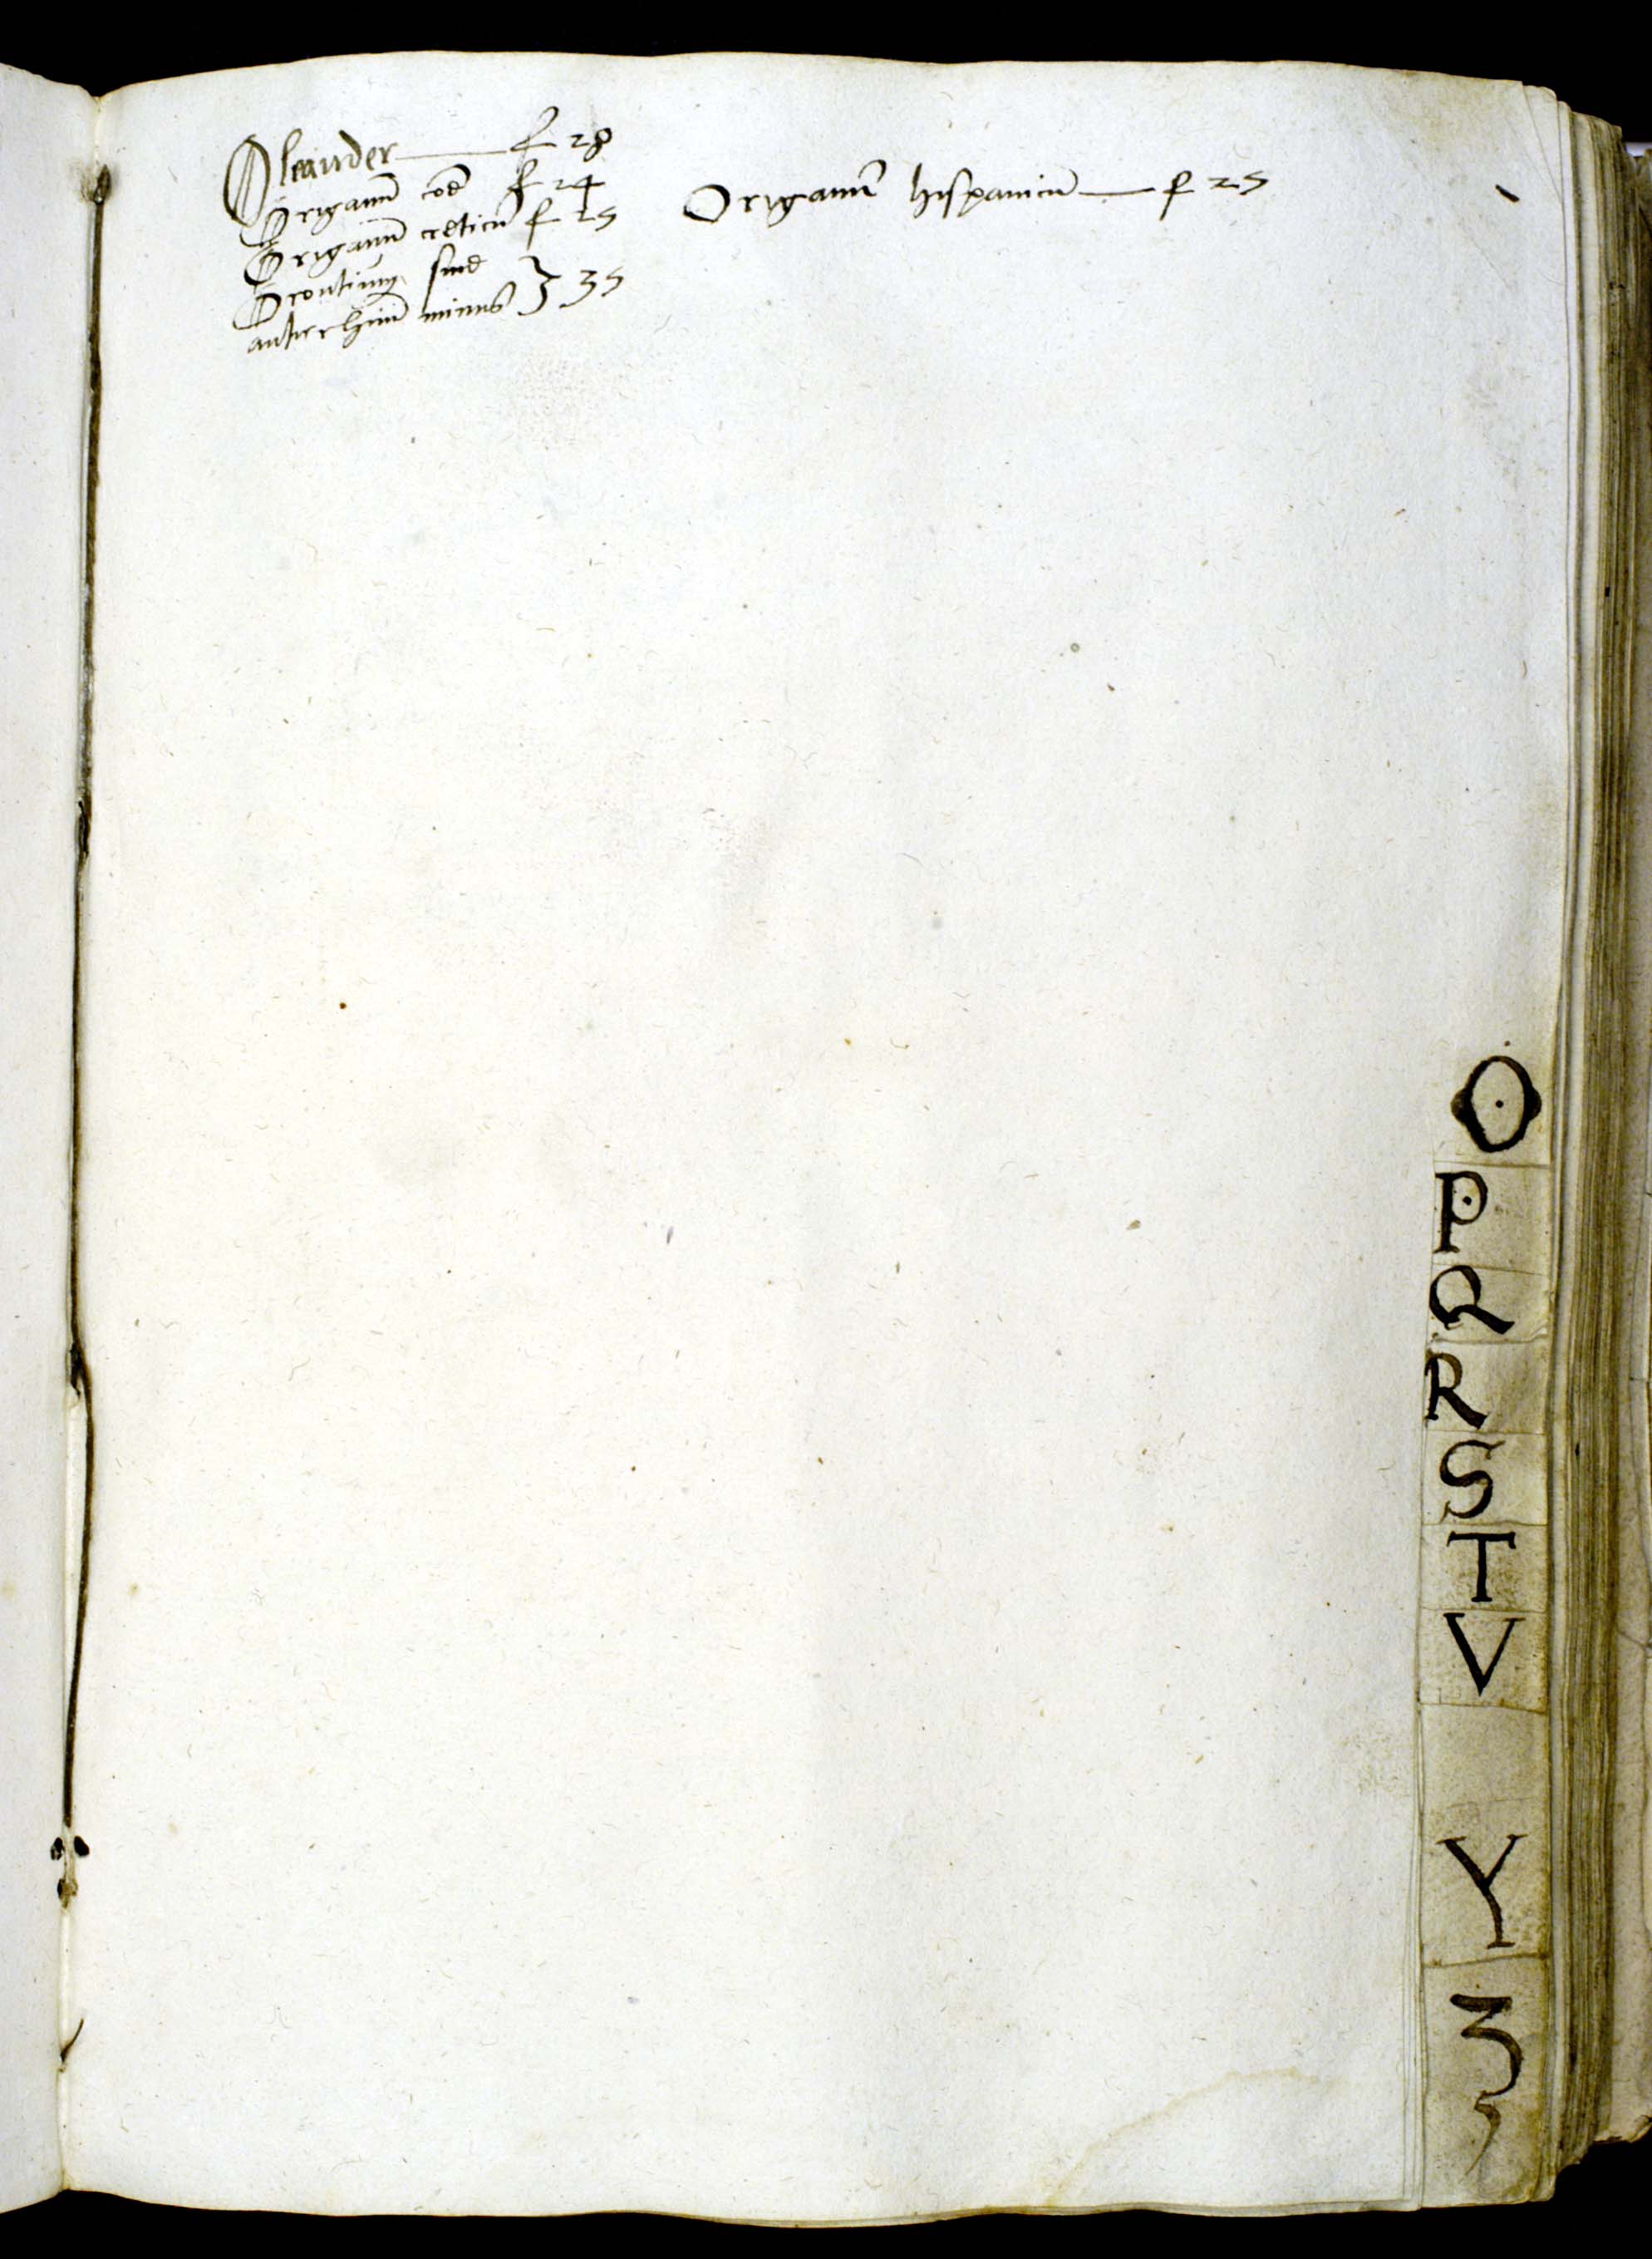 Oleander — f 28
Origanū cōe f 24
Origanū creticū f 25
Orontium siue
antirrhinū minus } 35
Origanū hispanicū — f 25
O
P
Q
R
S
T
V
Y
Z